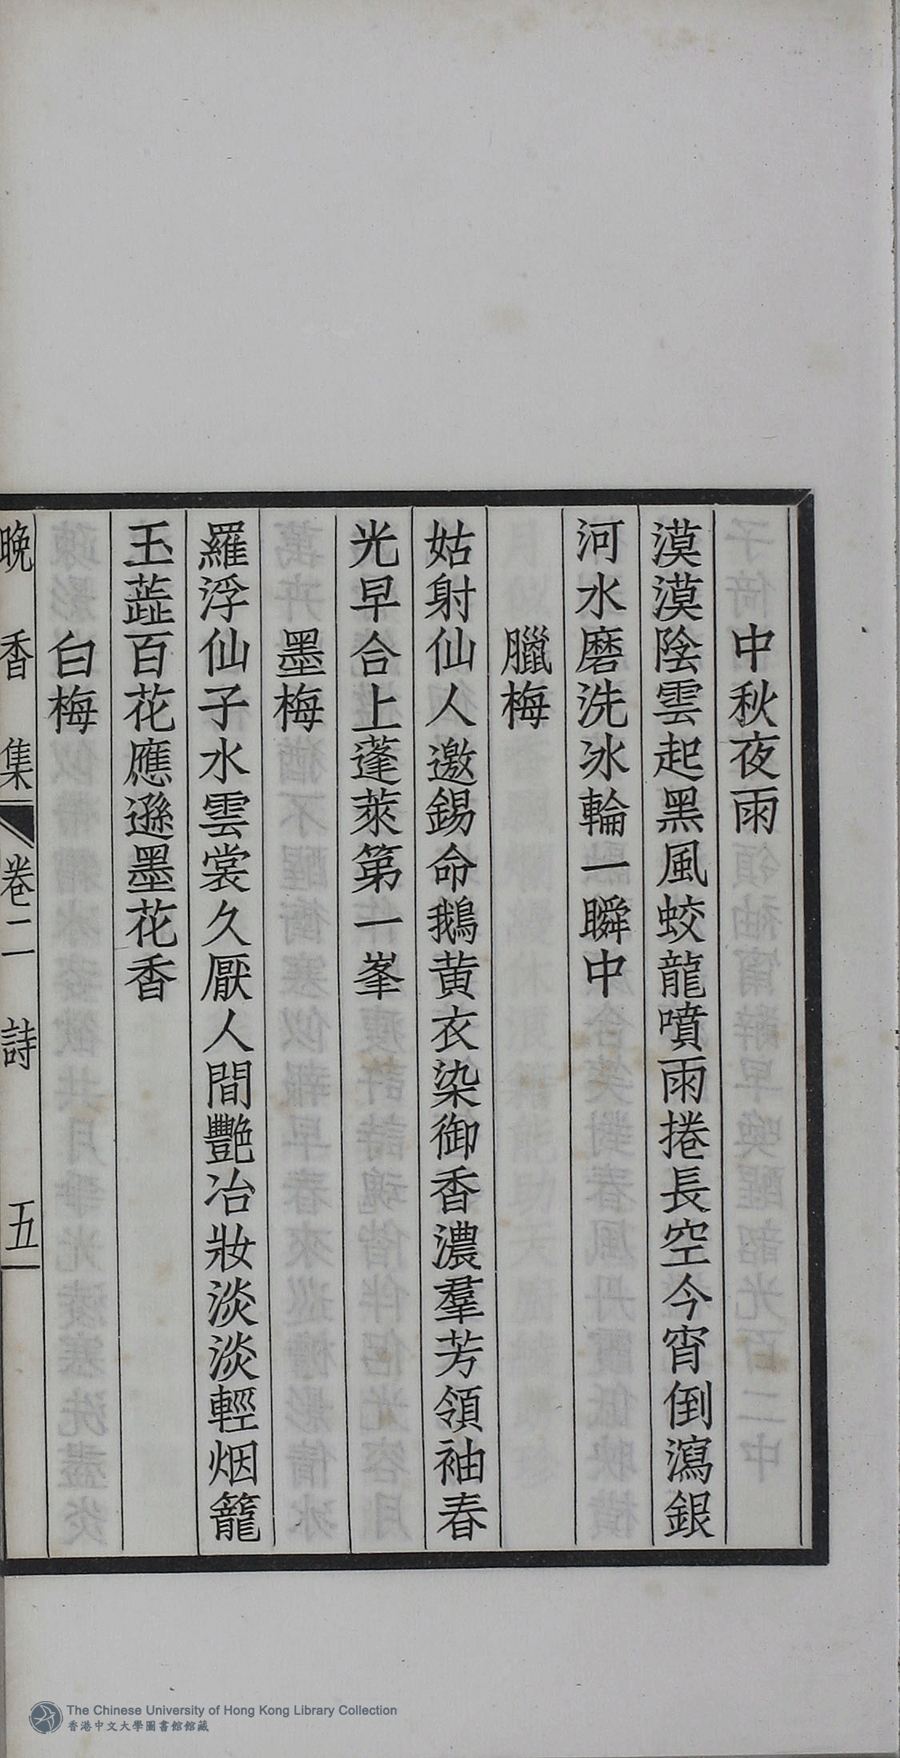 中秋夜雨
漠漠陰雲起黑風蛟龍噴雨捲長空今宵倒瀉銀
河水磨洗冰輪一瞬中
臘梅
姑射仙人邀錫命鵝黄衣染御香濃羣芳領袖春
光早合上蓬萊第一峯
墨梅
羅浮仙子水雲裳久厭人間艷冶妝淡淡輕烟籠
玉蕋百花應遜墨花香
白梅
晚香集 卷二 詩 五
The Chinese University of Hong Kong Library Collection
香港中文大學圖書館館藏